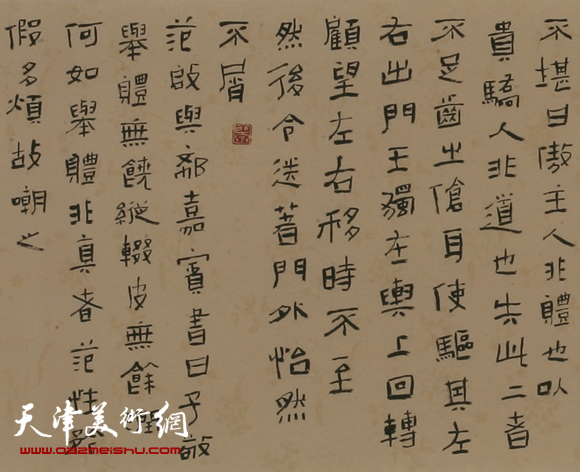 不堪曰傲主人非體也以
貴驕人非道也失此二者
不足齒之傖耳便驅其左
右出門王獨在輿上回轉
顧望左右移時不至
然後令送著門外怡然
不屑
范啟與郗嘉賓書曰子敬
舉體無饒縱輟皮無餘
何如舉體非真者范性
假多煩故嘲之
天津美術網
www.022meishu.com